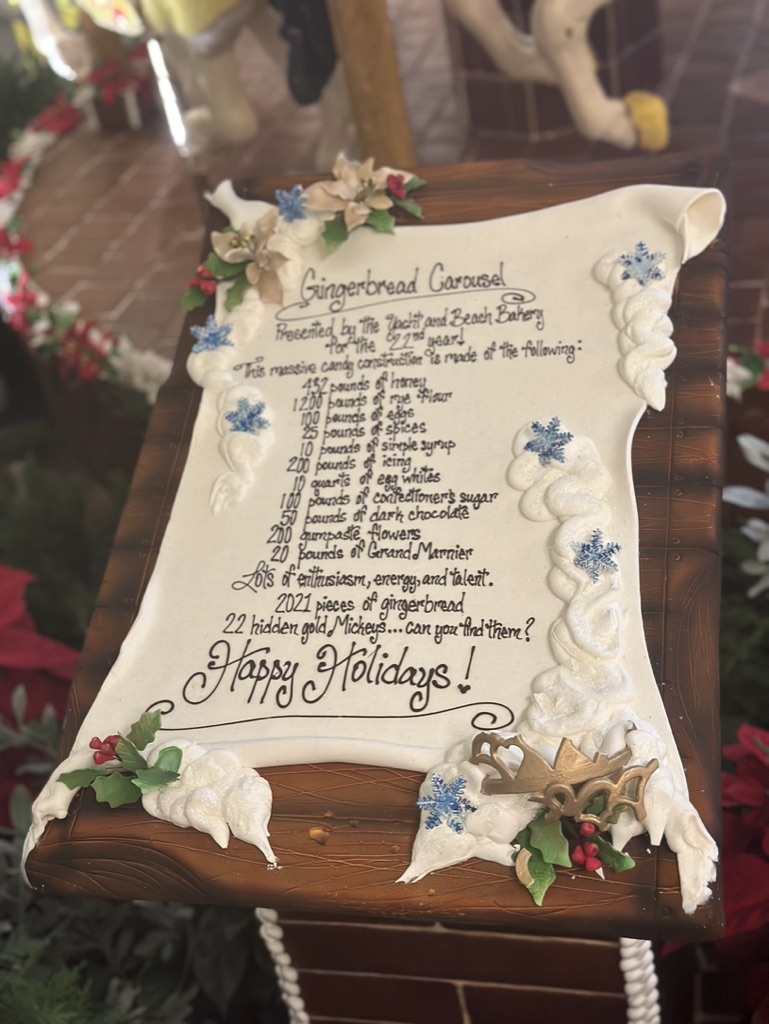 Gingerbread Carousel
Presented by the Yacht and Beach Bakery
for the 22nd year!
This massive candy construction is made of the following:
432 pounds of honey
1200 pounds of rye flour
100 pounds of eggs
25 pounds of spices
10 pounds of simple syrup
200 pounds of icing
10 quarts of egg whites
100 pounds of confectioner's sugar
50 pounds of dark chocolate
200 gumpaste flowers
20 pounds of Grand Marnier
Lots of enthusiasm, energy, and talent.
2021 pieces of gingerbread
22 hidden gold Mickeys... can you find them?
Happy Holidays!